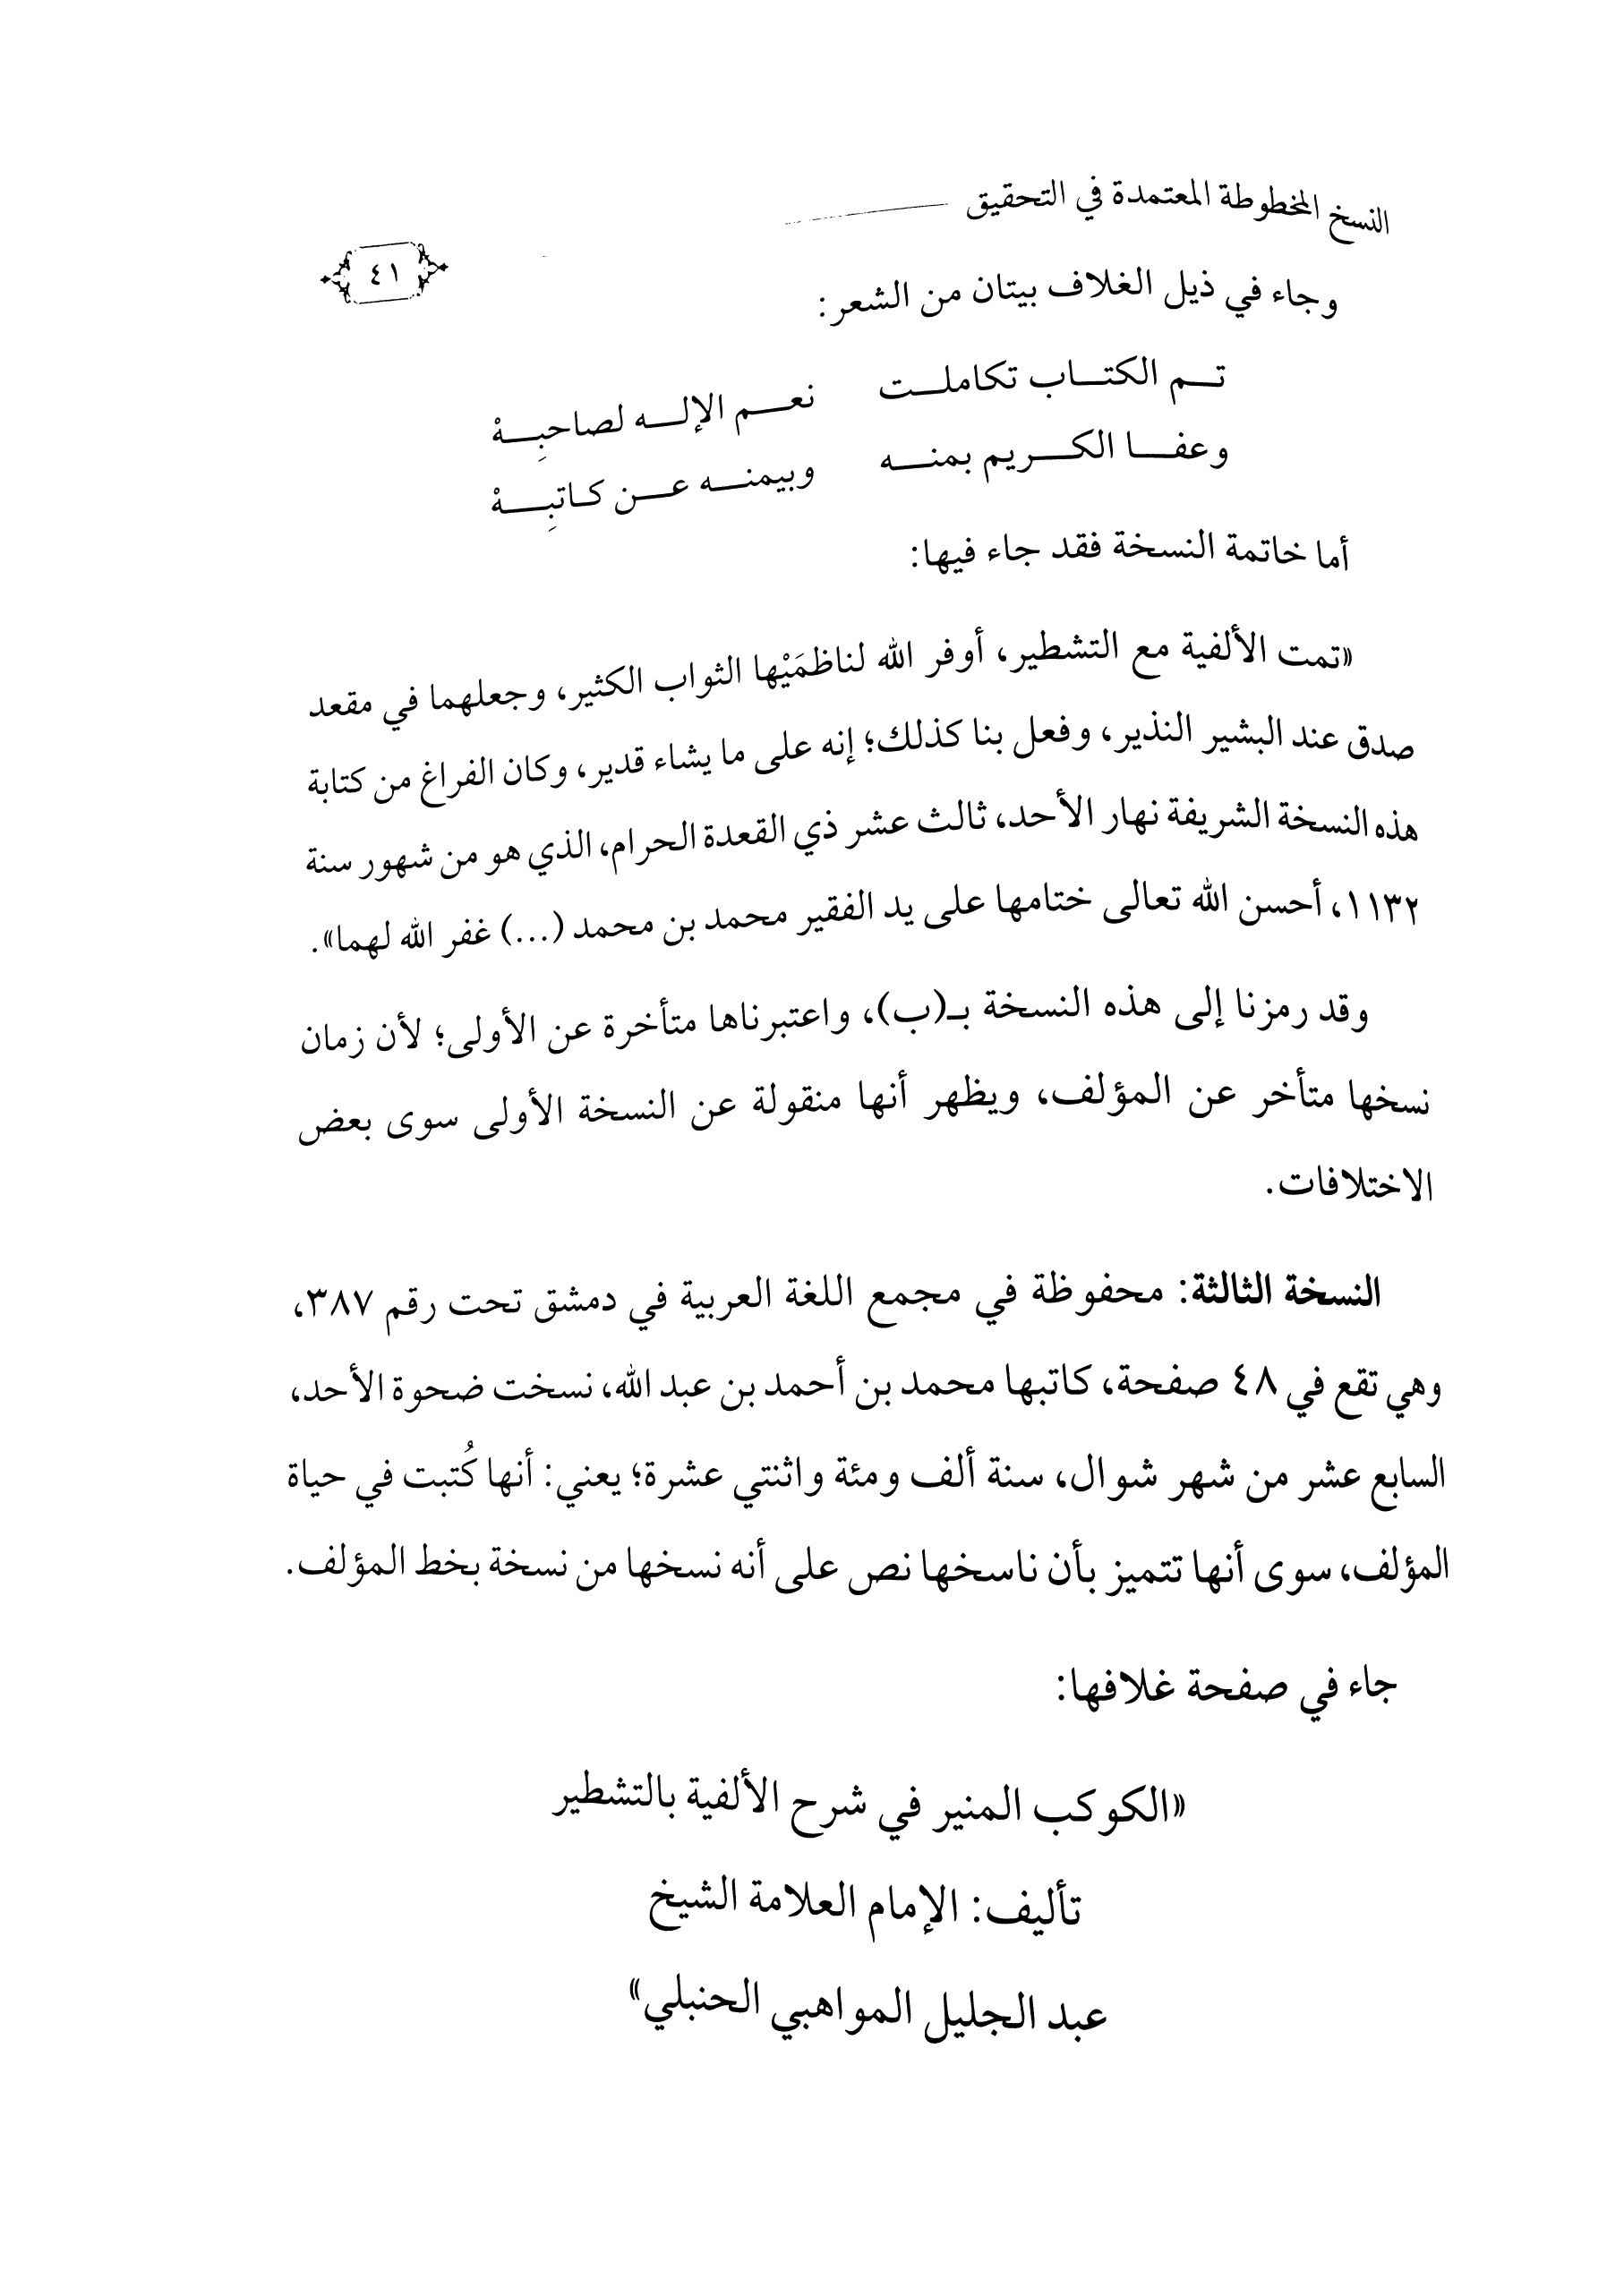 النسخ المخطوطة المعتمدة في التحقيق
٤١
وجاء في ذيل الغلاف بيتان من الشعر:
تم الكتاب تكاملت نعم الإله لصاحبِهْ
وعفا الكريم بمنه وبيمنه عن كاتبِهْ
أما خاتمة النسخة فقد جاء فيها:
«تمت الألفية مع التشطير، أوفر الله لناظمَيْها الثواب الكثير، وجعلهما في مقعد
صدق عند البشير النذير، وفعل بنا كذلك؛ إنه على ما يشاء قدير، وكان الفراغ من كتابة
هذه النسخة الشريفة نهار الأحد، ثالث عشر ذي القعدة الحرام، الذي هو من شهور سنة
١١٣٢، أحسن الله تعالى ختامها على يد الفقير محمد بن محمد (...) غفر الله لهما».
وقد رمزنا إلى هذه النسخة بـ(ب)، واعتبرناها متأخرة عن الأولى؛ لأن زمان
نسخها متأخر عن المؤلف، ويظهر أنها منقولة عن النسخة الأولى سوى بعض
الاختلافات.
النسخة الثالثة: محفوظة في مجمع اللغة العربية في دمشق تحت رقم ٣٨٧،
وهي تقع في ٤٨ صفحة، كاتبها محمد بن أحمد بن عبد الله، نسخت ضحوة الأحد،
السابع عشر من شهر شوال، سنة ألف ومئة واثنتي عشرة؛ يعني: أنها كُتبت في حياة
المؤلف، سوى أنها تتميز بأن ناسخها نص على أنه نسخها من نسخة بخط المؤلف.
جاء في صفحة غلافها:
«الكوكب المنير في شرح الألفية بالتشطير
تأليف: الإمام العلامة الشيخ
عبد الجليل المواهبي الحنبلي»